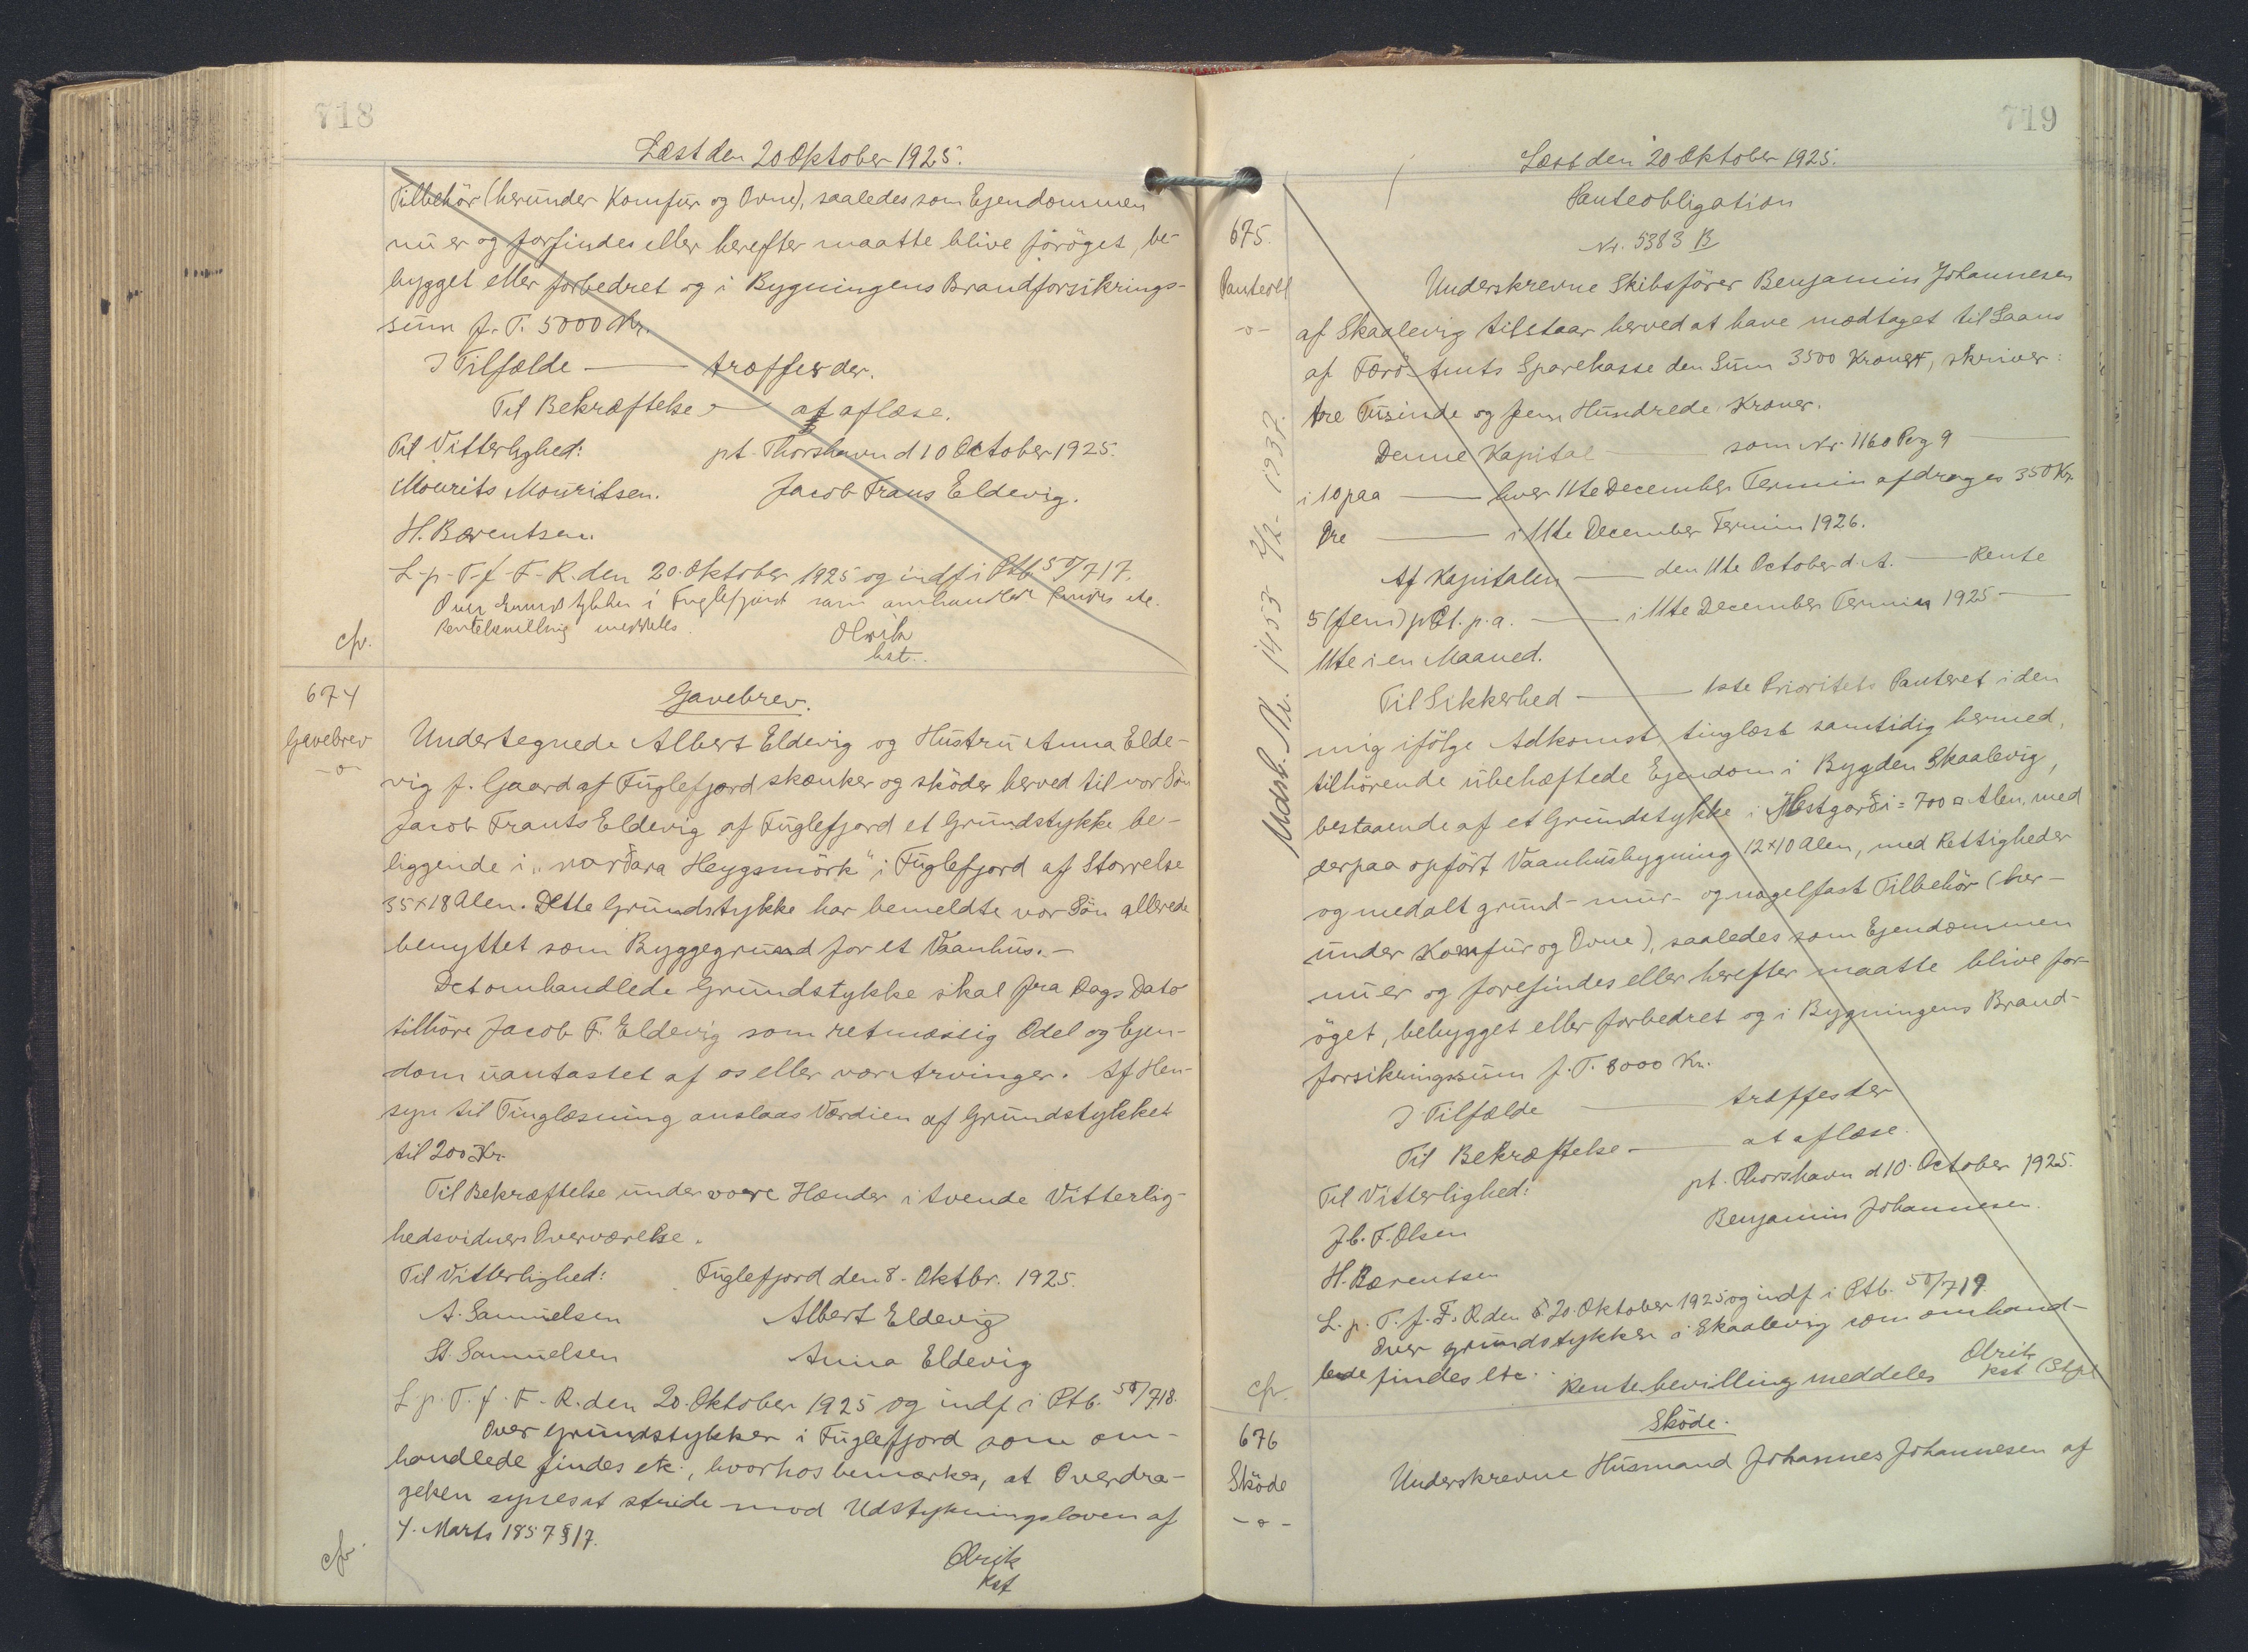 718
Læst den 20 Oktober 1925.
Tilbehör (herunder Komfur og Ovne), saaledes som Ejendommen
nu er og forfindes eller herefter maatte blive foröget, be-
bygget eller forbedret og i Bygningens Brandforsikrings-
sum f. T. 5000 Kr.
I Tilfælde — træffes der.
Til Bekræftelse — at aflæse.
Til Vitterlighed: pt. Thorshavn d 10 October 1925.
Mourits Mouritsen. Jacob Frans Eldevig.
H. Bærentsen
L-p-T-f-F-R. den 20. Oktober 1925 og indf i Ptb. 50/717.
Over Grundstykker i Fuglefjord som omhandlet findes etc.
Rentebevilling meddeles.
Olrik
kst.
cfr.
674
Gavebrev
-o-
Gavebrev.
Undertegnede Albert Eldevig og Hustru Anna Elde-
vig f. Gaard af Fuglefjord skænker og sköder herved til vor Sön
Jacob Frants Eldevig af Fuglefjord et Grundstykke be-
liggende i „norðara Heygsmörk" i Fuglefjord af Storrelse
35×18 Alen. Dette Grundstykke har bemeldte vor Sön allerede
benyttet som Byggegrund for et Vaanhus.-
Det omhandlede Grundstykke skal fra Dags Dato
tilhöre Jacob F. Eldevig som retmæssig Odel og Ejen-
dom uantastet af os eller vor Arvinger. Af Hen-
syn til Tinglæsning anslaas Værdien af Grundstykket
til 200 Kr.
Til Bekræftelse under vore Hænder i tvende Vitterlig-
hedsvidners Overværelse.
Til Vitterlighed: Fuglefjord den 8. Oktbr. 1925.
A. Samuelsen Albert Eldevig
St. Samuelsen Anna Eldevig
L. p. T. f. F. R. den 20. Oktober 1925 og indf i Ptb. 50/718.
Over Grundstykker i Fuglefjord som om-
handlede findes etc., hvorhos bemærkes, at Overdra-
gelsen synes at stride mod Udstykningsloven af
4. Marts 1857 § 17.
Olrik
kst
cfr.
719
Læst den 20 Oktober 1925.
Panteobligation
Nr. 5383 B
675.
Panteobl
-o-
Underskrevne Skibsförer Benjamin Johannesen
af Skaalevig tilstaar herved at have modtaget til Laans
af Færö Amts Sparekasse den Sum 3500 Kroner, skriver:
tre Tusinde og fem Hundrede Kroner.
Denne Kapital — som Nr. 1160 Pag 9 —
i 10 paa — hver 11te December Termin afdrages 350 Kr.
Öre — i 11te December Termin 1926.
Af Kapitalen — den 11te October d. A. — Rente
5 (fem) pCt. p. a. — i 11te December Termin 1925 —
11te i en Maaned.
Til Sikkerhed — 1ste Prioritets Panteret i den
mig ifölge Adkomst, tinglæst samtidig hermed,
tilhörende ubehæftede Ejendom i Bygden Skaalevig,
bestaaende af et Grundstykke i Hestgorði = 700 □ Alen, med
derpaa opfört Vaanhusbygning 12×10 Alen, med Rettigheder
og med alt grund- mur- og nagelfast Tilbehör (her-
under Komfur og Ovne), saaledes som Ejendommen
nu er og forefindes eller herefter maatte blive for-
öget, bebygget eller forbedret og i Bygningens Brand-
forsikringssum f. T. 8000 Kr.
I Tilfælde — træffes der
Til Bekræftelse — at aflæse.
Til Vitterlighed: pt. Thorshavn d 10. October 1925.
J. C. F. Olsen Benjamin Johannesen.
H. Bærentsen
L. p. T. f. F. R. den 20. Oktober 1925 og indf i Ptb. 50/719
Over grundstykker i Skaalevig som omhand-
lede findes etc. Rentebevilling meddeles Olrik
kst (St.)
cfr.
Udsl. Nr. 1453 2/2- 1937.
676
Sköde
-o-
Sköde.
Underskrevne Husmand Johannes Johannesen af